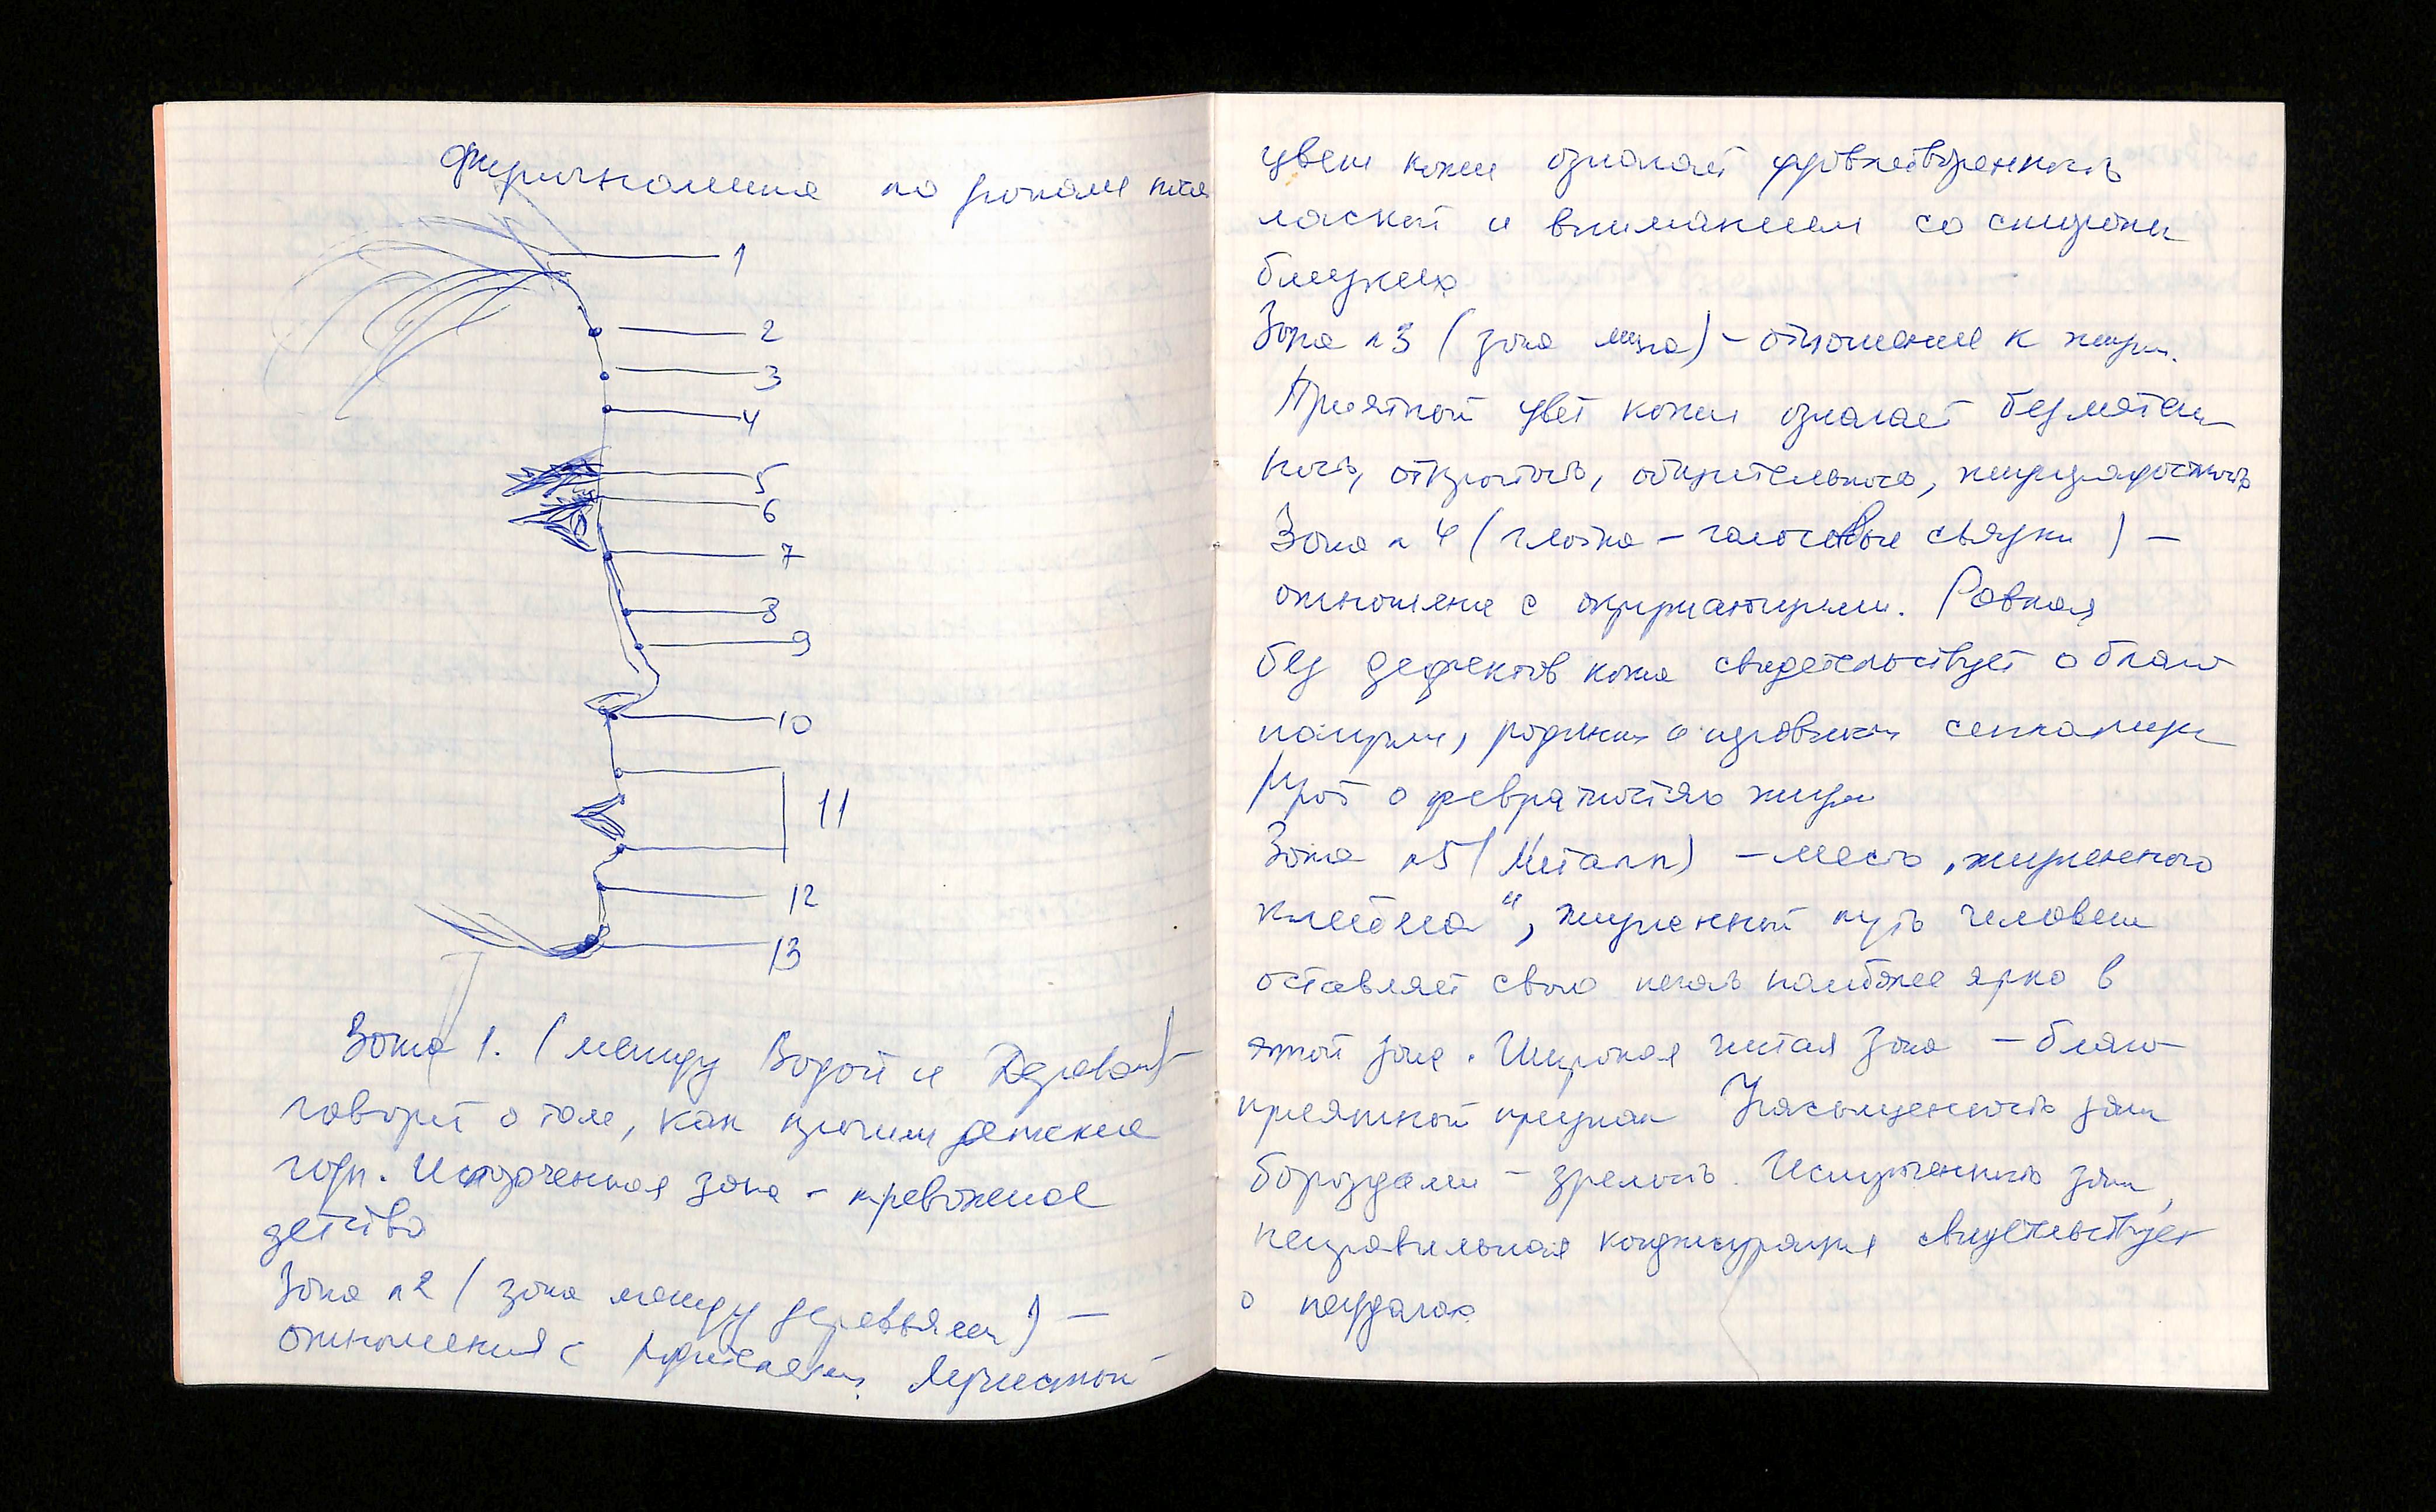 Физиогномия по зонам
1
2
3
4
5
6
7
8
9
10
11
12
13
Зона 1. (между Водой и
говорит о том, как прошли детские
годы. Испорченная зона - тревожное
детство
Зона №2 (зона между деревьями) —
отношения с Лучистый
цвет кожи означает удовлетворенность
лаской и вниманием со стороны
ближних
Зона №3 (зона) - отношение к жизни.
Приятный цвет кожи означает безмятеж
ность, открытость, общительность, жизнерадостность
Зона №4 (глотка - голосовые связки) —
отношение с окружающими. Ровная
без дефектов кожа свидетельствует о благо
получии, родинки и
о превратностях жизни
Зона №5 (Металл) - место „жизненного
клейма“, жизненный путь человека
оставляет свою печать наиболее ярко в
этой зоне. Широкая чистая зона - благо
приятный признак Насыщенность зоны
бороздами - зрелость. зоны,
неправильная конфигурация свидетельствует
о неудачах